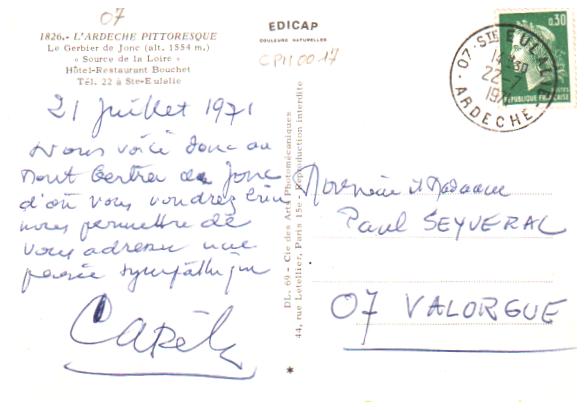 07
1826.- L'ARDECHE PITTORESQUE
Le Gerbier de Jonc (alt. 1554 m.)
« Source de la Loire »
Hôtel-Restaurant Bouchet
Tél. 22 à Ste-Eulalie
EDICAP
COULEURS NATURELLES
CPM 0017
21 Juillet 1971
Nous voici donc au
Mont Gerbier de Jonc
d'où vous voudrez bien
nous permettre de
vous adresser une
pensée sympathique
DL. 69 - Cie des Arts Photomécaniques
44, rue Letellier, Paris 15e - Reproduction interdite
*
0,30
REPUBLIQUE FRANÇAISE
07 - STE EULALIE
14 H 30
22-7
ARDECHE
Monsieur et Madame
Paul SEYVERAL
07 VALORGUE